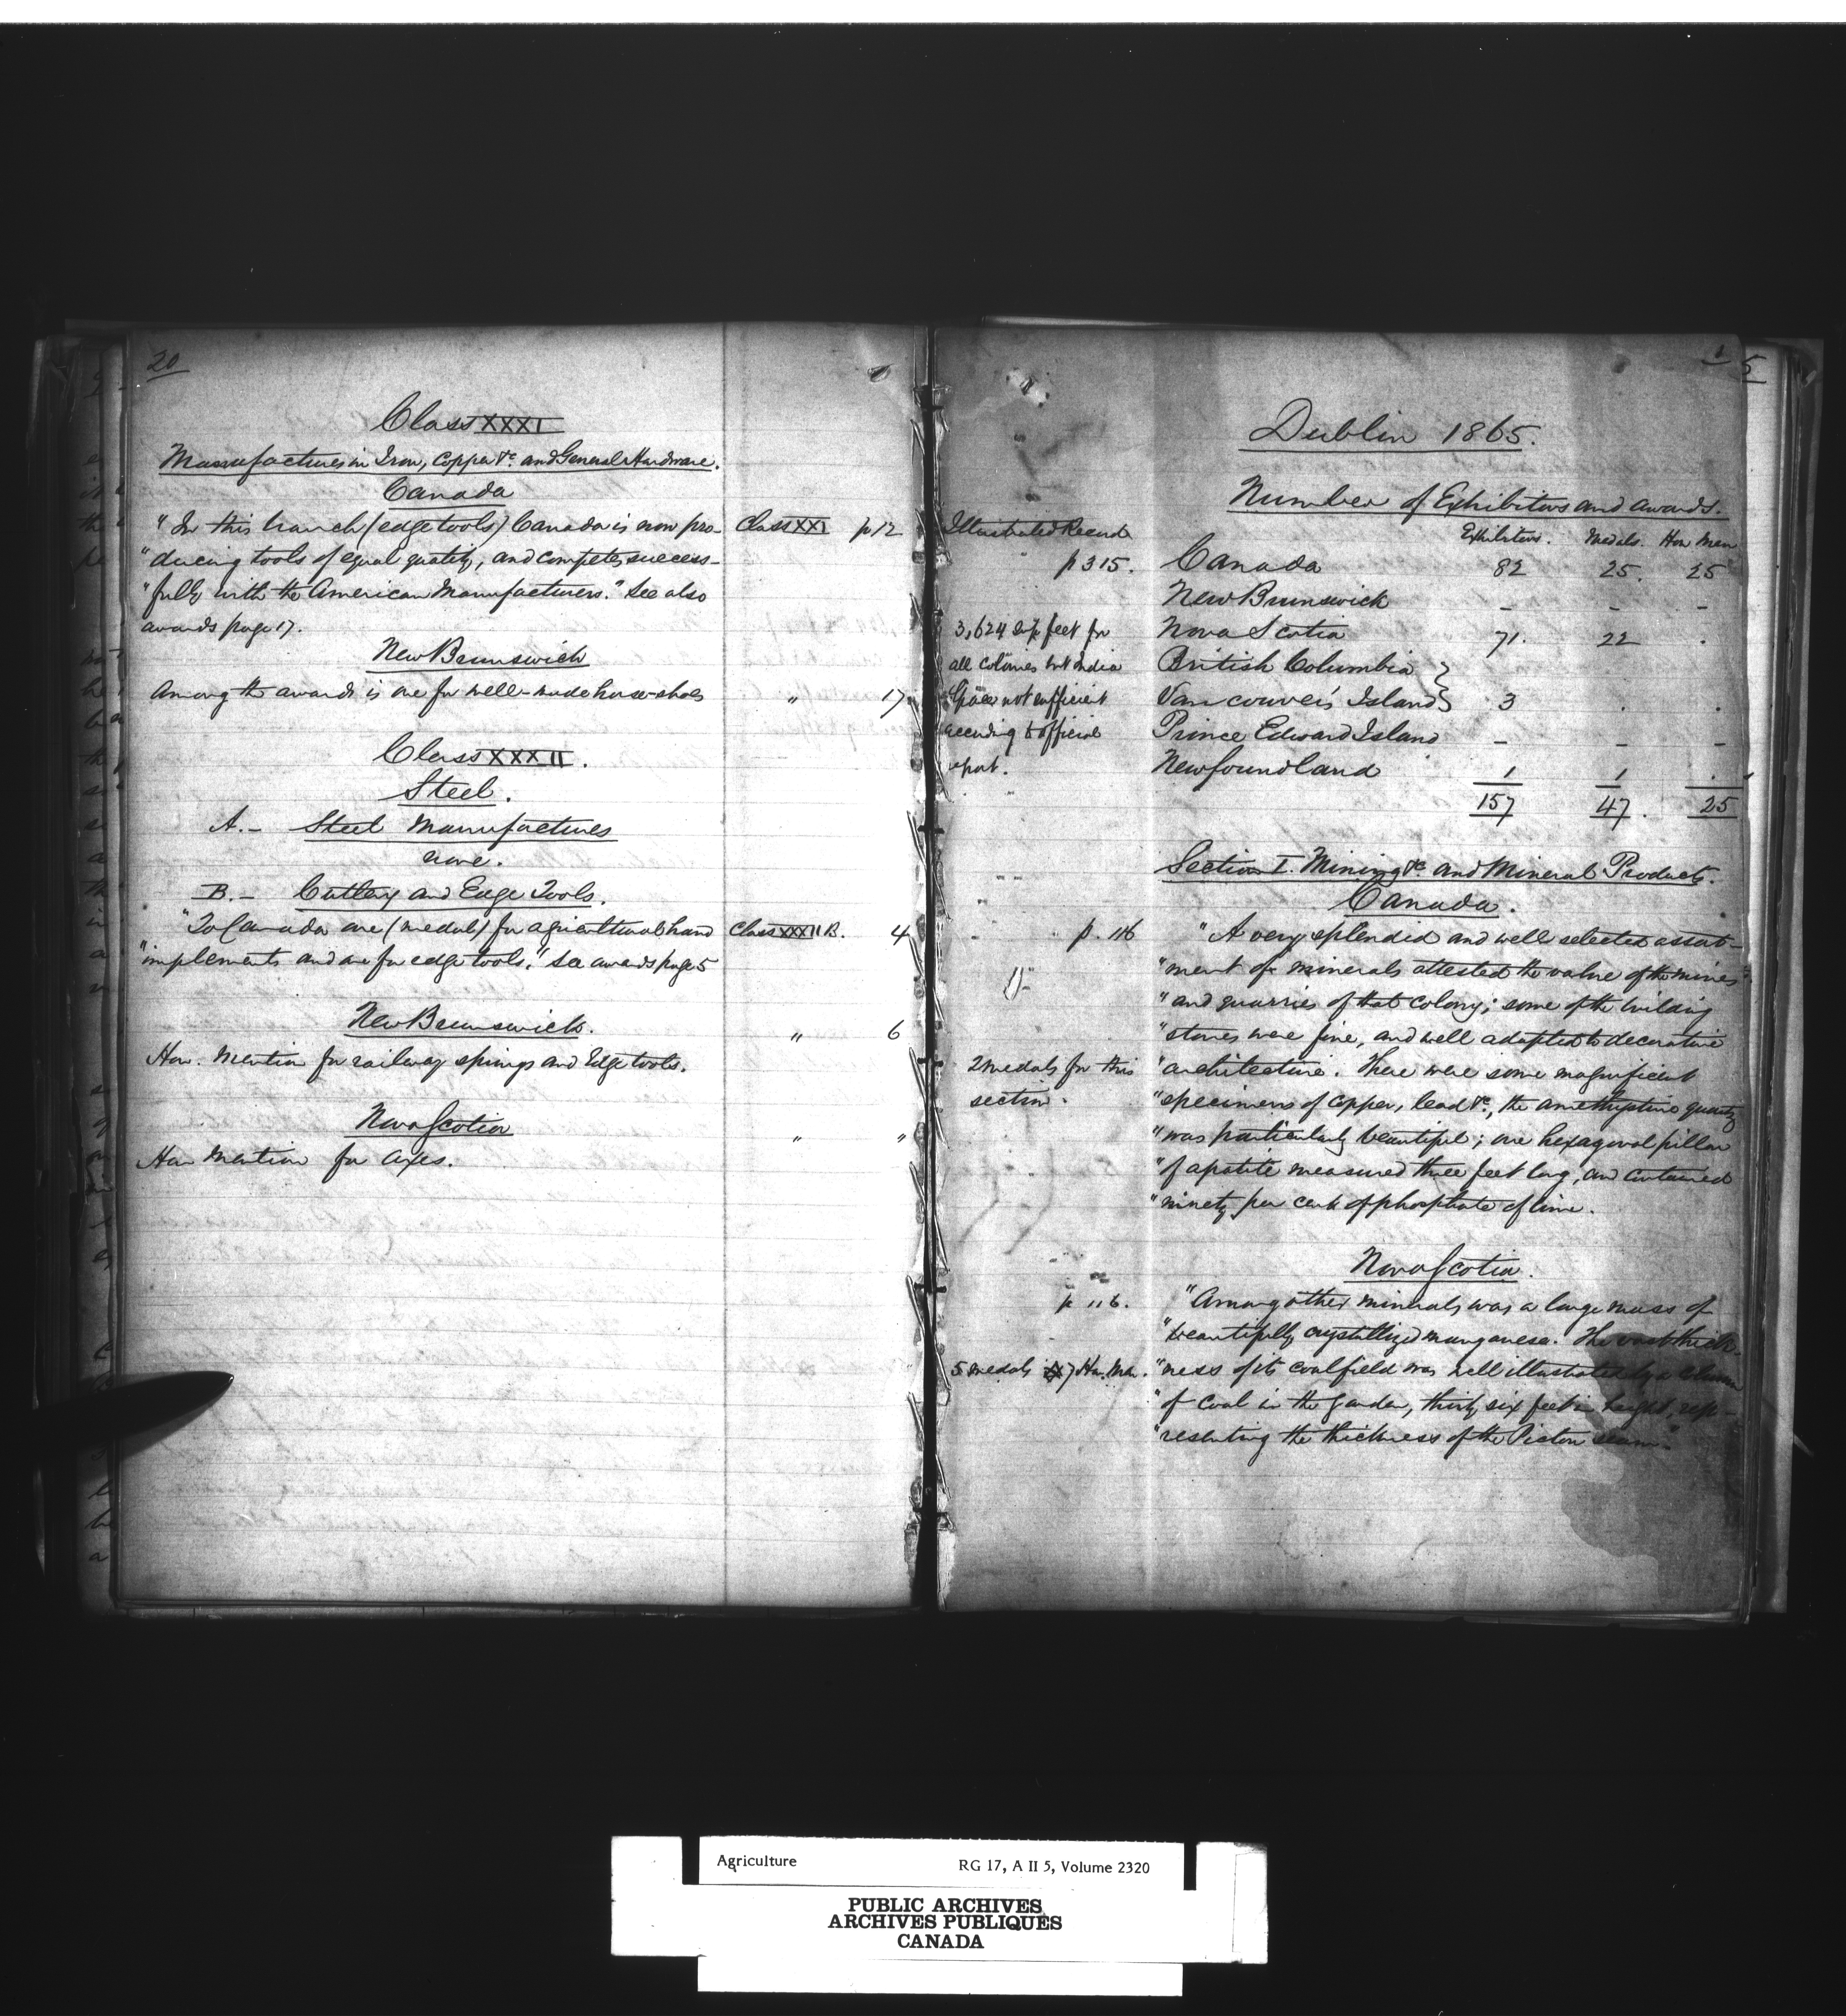 20
Class XXXI
Manufactures in Iron, Copper &c. and General Hardware.
Canada
"In this branch (edge tools) Canada is now pro- Class XXI p 12
"ducing tools of equal quality, and competes success-
"fully with the American Manufacturers." See also
awards page 17.
New Brunswick
Among the awards is one for well-made horse-shoes " 17
Class XXXII.
Steel.
A.- Steel Manufactures
none.
B.- Cutlery and Edge Tools.
"To Canada one (medal) for agricultural hand Class XXXII B. 4
"implements and one for edge tools." See awards page 5
New Brunswick. " 6
Hon. Mention for railway springs and Edge tools.
Nova Scotia " "
Hon Mention for axes.
1 5
Dublin 1865.
Number of Exhibitors and awards.
Illustrated Record Exhibitors. Medals. Hon Men
p 315. Canada 82 25. 25
New Brunswick - - -
3,624 sup feet for Nova Scotia 71. 22 .
all colonies but India British Columbia }
Space not sufficient Vancouver's Island } 3 . .
according to official Prince Edward Island - - -
report. Newfoundland 1 1 .
157 47. 25
Section I. Mining &c. and Mineral Products.
Canada.
p. 116 "A very splendid and well selected assort-
"ment of minerals attested the value of the mines
"and quarries of that colony; some of the building
"stones were fine, and well adapted to decorative
2 medals for this "architecture. There were some magnificent
section. "specimens of copper, lead &c., the amethystine quartz
"was particularly beautiful; one hexagonal pillar
"of apatite measured three feet long, and contained
"ninety per cent of phosphate of lime.
Nova Scotia.
p 116. "Among other minerals was a large mass of
"beautifully crystallized manganese. The vast thick-
5 medals 7 Hon. Men. "ness of its coalfield was well illustrated by a column
"of coal in the garden, thirty six feet in height, rep-
"resenting the thickness of the Pictou seam."
Agriculture RG 17, A II 5, Volume 2320
PUBLIC ARCHIVES
ARCHIVES PUBLIQUES
CANADA